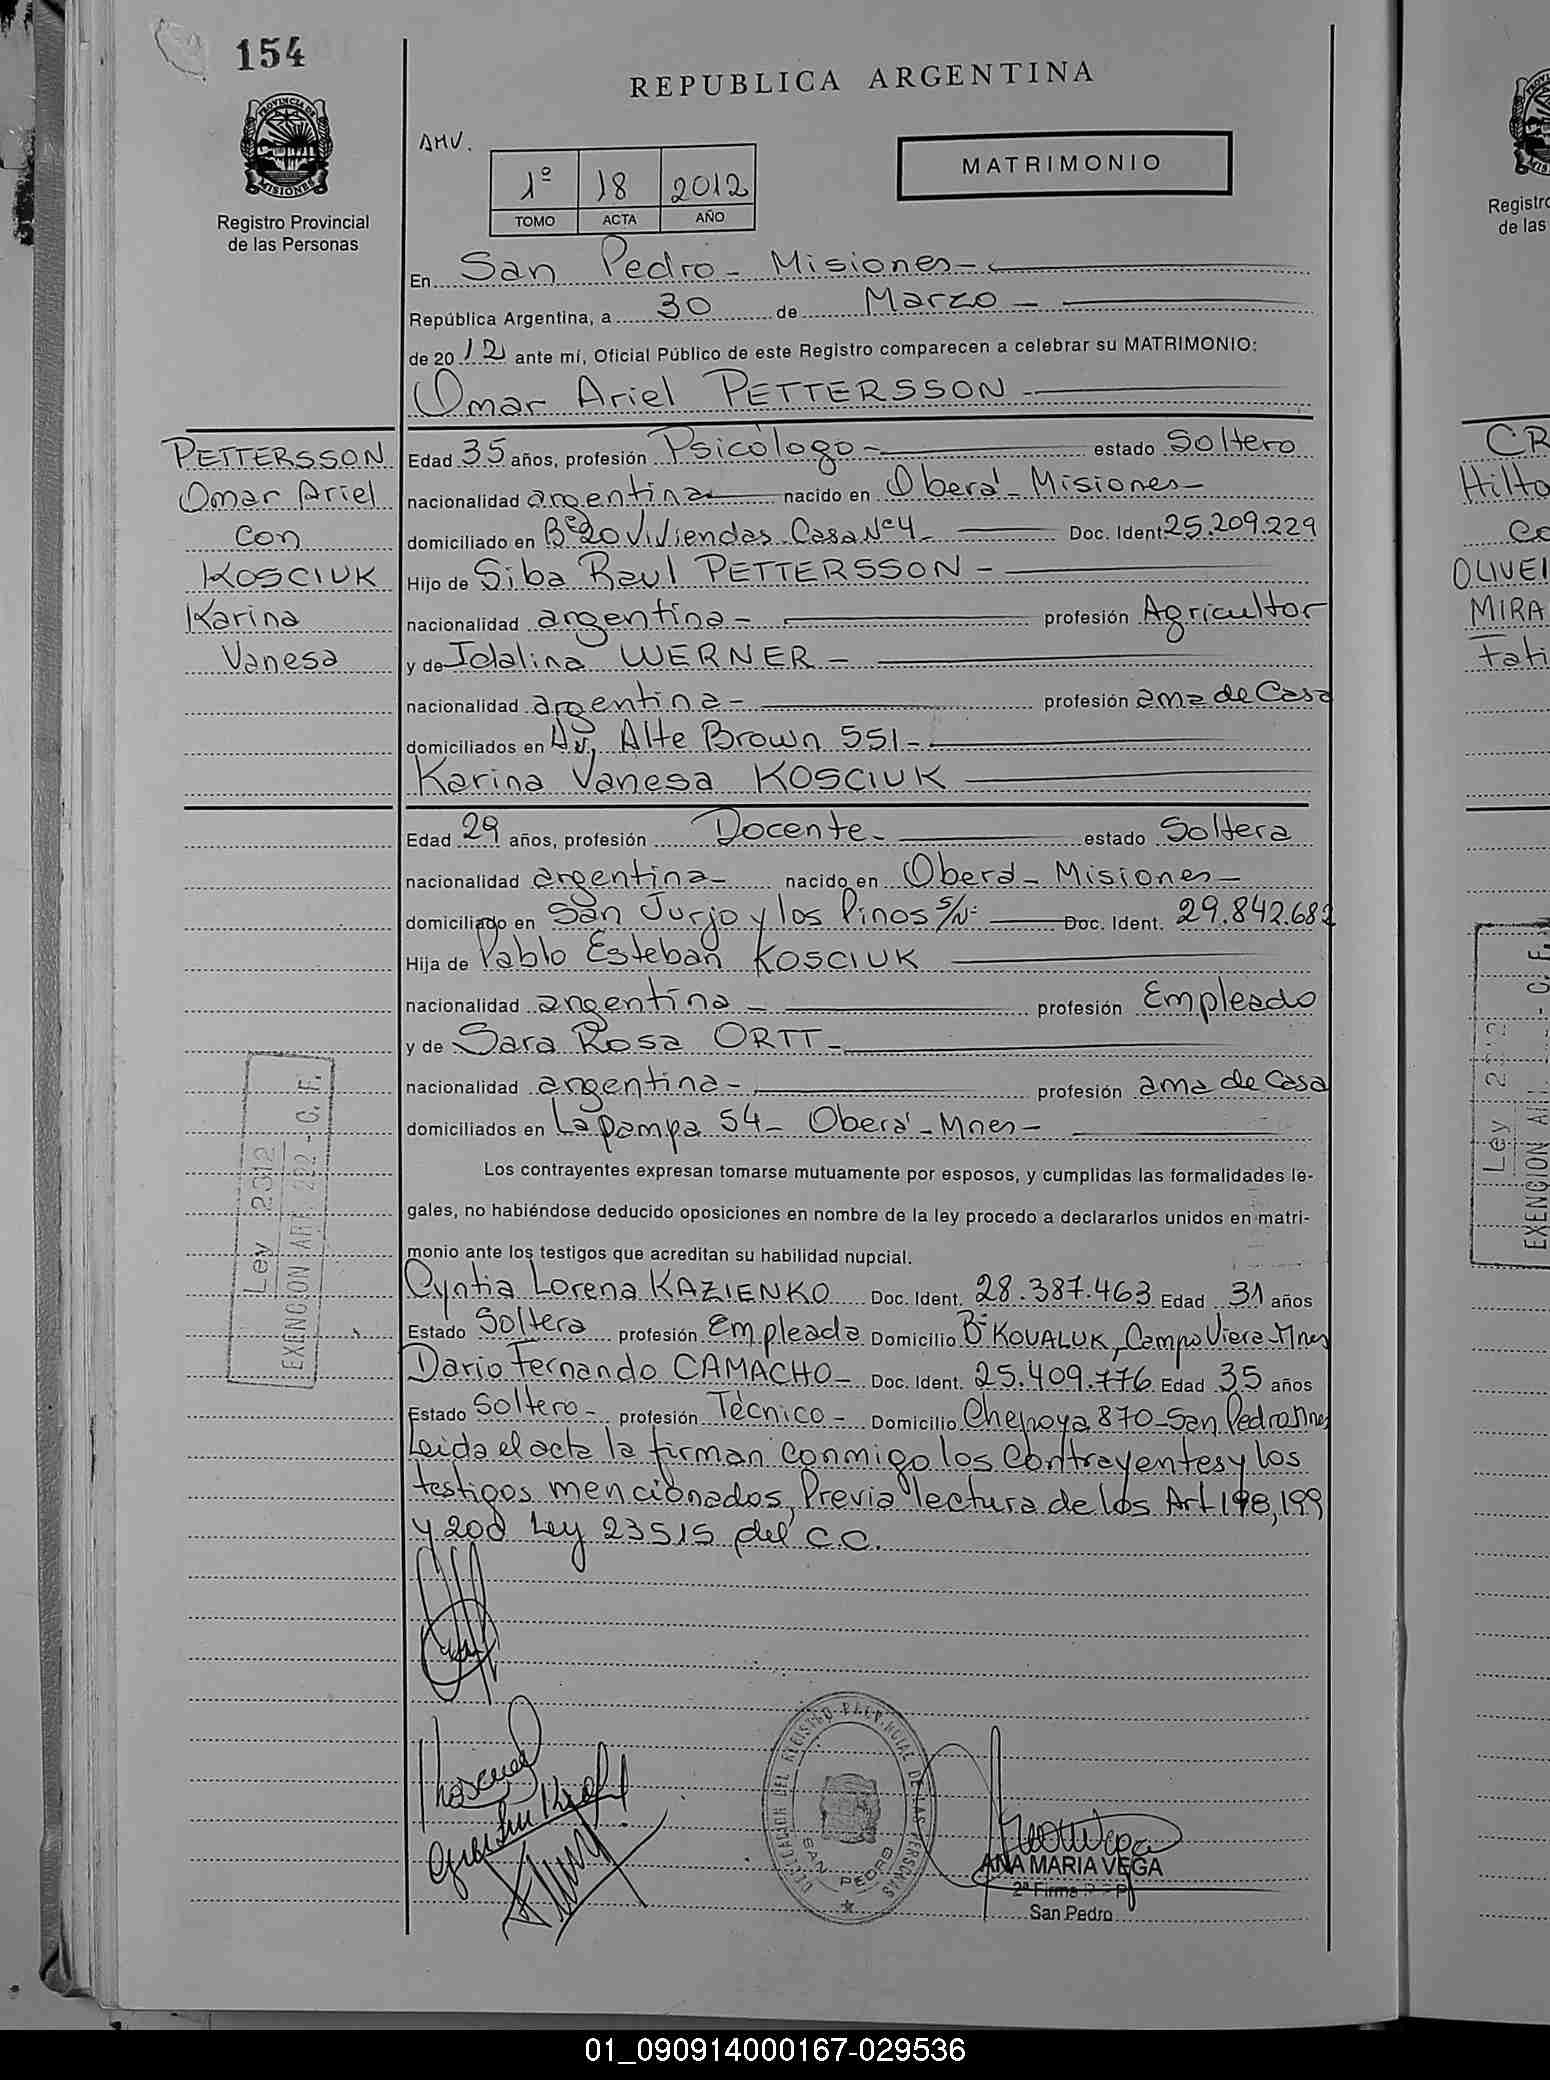 154
REPUBLICA ARGENTINA
PROVINCIA DE
MISIONES
Registro Provincial
de las Personas
AMV.
MATRIMONIO
1º 18 2012
TOMO ACTA AÑO
En San Pedro - Misiones -
República Argentina, a 30 de Marzo -
de 2012 ante mí, Oficial Público de este Registro comparecen a celebrar su MATRIMONIO:
Omar Ariel PETTERSSON -
PETTERSSON
Omar Ariel
con
KOSCIUK
Karina
Vanesa
Edad 35 años, profesión Psicólogo - estado Soltero
nacionalidad argentina nacido en Oberá - Misiones -
domiciliado en Bº 20 Viviendas Casa Nº 4 - Doc. Ident. 25.209.229
Hijo de Siba Raul PETTERSSON -
nacionalidad argentina - profesión Agricultor
y de Idalina WERNER -
nacionalidad argentina - profesión ama de Casa
domiciliados en Av. Alte Brown 551 -
Karina Vanesa KOSCIUK
Edad 29 años, profesión Docente - estado Soltera
nacionalidad argentina - nacido en Oberá - Misiones -
domiciliado en San Jurjo y los Pinos S/Nº Doc. Ident. 29.842.682
Hija de Pablo Esteban KOSCIUK
nacionalidad argentina - profesión Empleado
y de Sara Rosa ORTT -
nacionalidad argentina - profesión ama de Casa
domiciliados en La pampa 54 - Oberá - Mnes -
Los contrayentes expresan tomarse mutuamente por esposos, y cumplidas las formalidades le-
gales, no habiéndose deducido oposiciones en nombre de la ley procedo a declararlos unidos en matri-
monio ante los testigos que acreditan su habilidad nupcial.
Cyntia Lorena KAZIENKO Doc. Ident. 28.387.463 Edad 31 años
Estado Soltera profesión Empleada Domicilio Bº KOVALUK, Campo Viera - Mnes
Dario Fernando CAMACHO - Doc. Ident. 25.409.776 Edad 35 años
Estado Soltero - profesión Técnico - Domicilio Chepoya 870 - San Pedro Mnes
Leida el acta la firman conmigo los Contrayentes y los
testigos mencionados, Previa lectura de los Art 198, 199
y 200 Ley 23515 del C.C.
Ley 2312
EXENCION ART. 222 - C. F.
DELEGACION DEL REGISTRO PROVINCIAL DE LAS PERSONAS
SAN PEDRO
ANA MARIA VEGA
2ª Firma
San Pedro
Registro
de las
CR
Hilto
Co
OLIVEI
MIRA
Fati
Ley
EXENCION
01_090914000167-029536